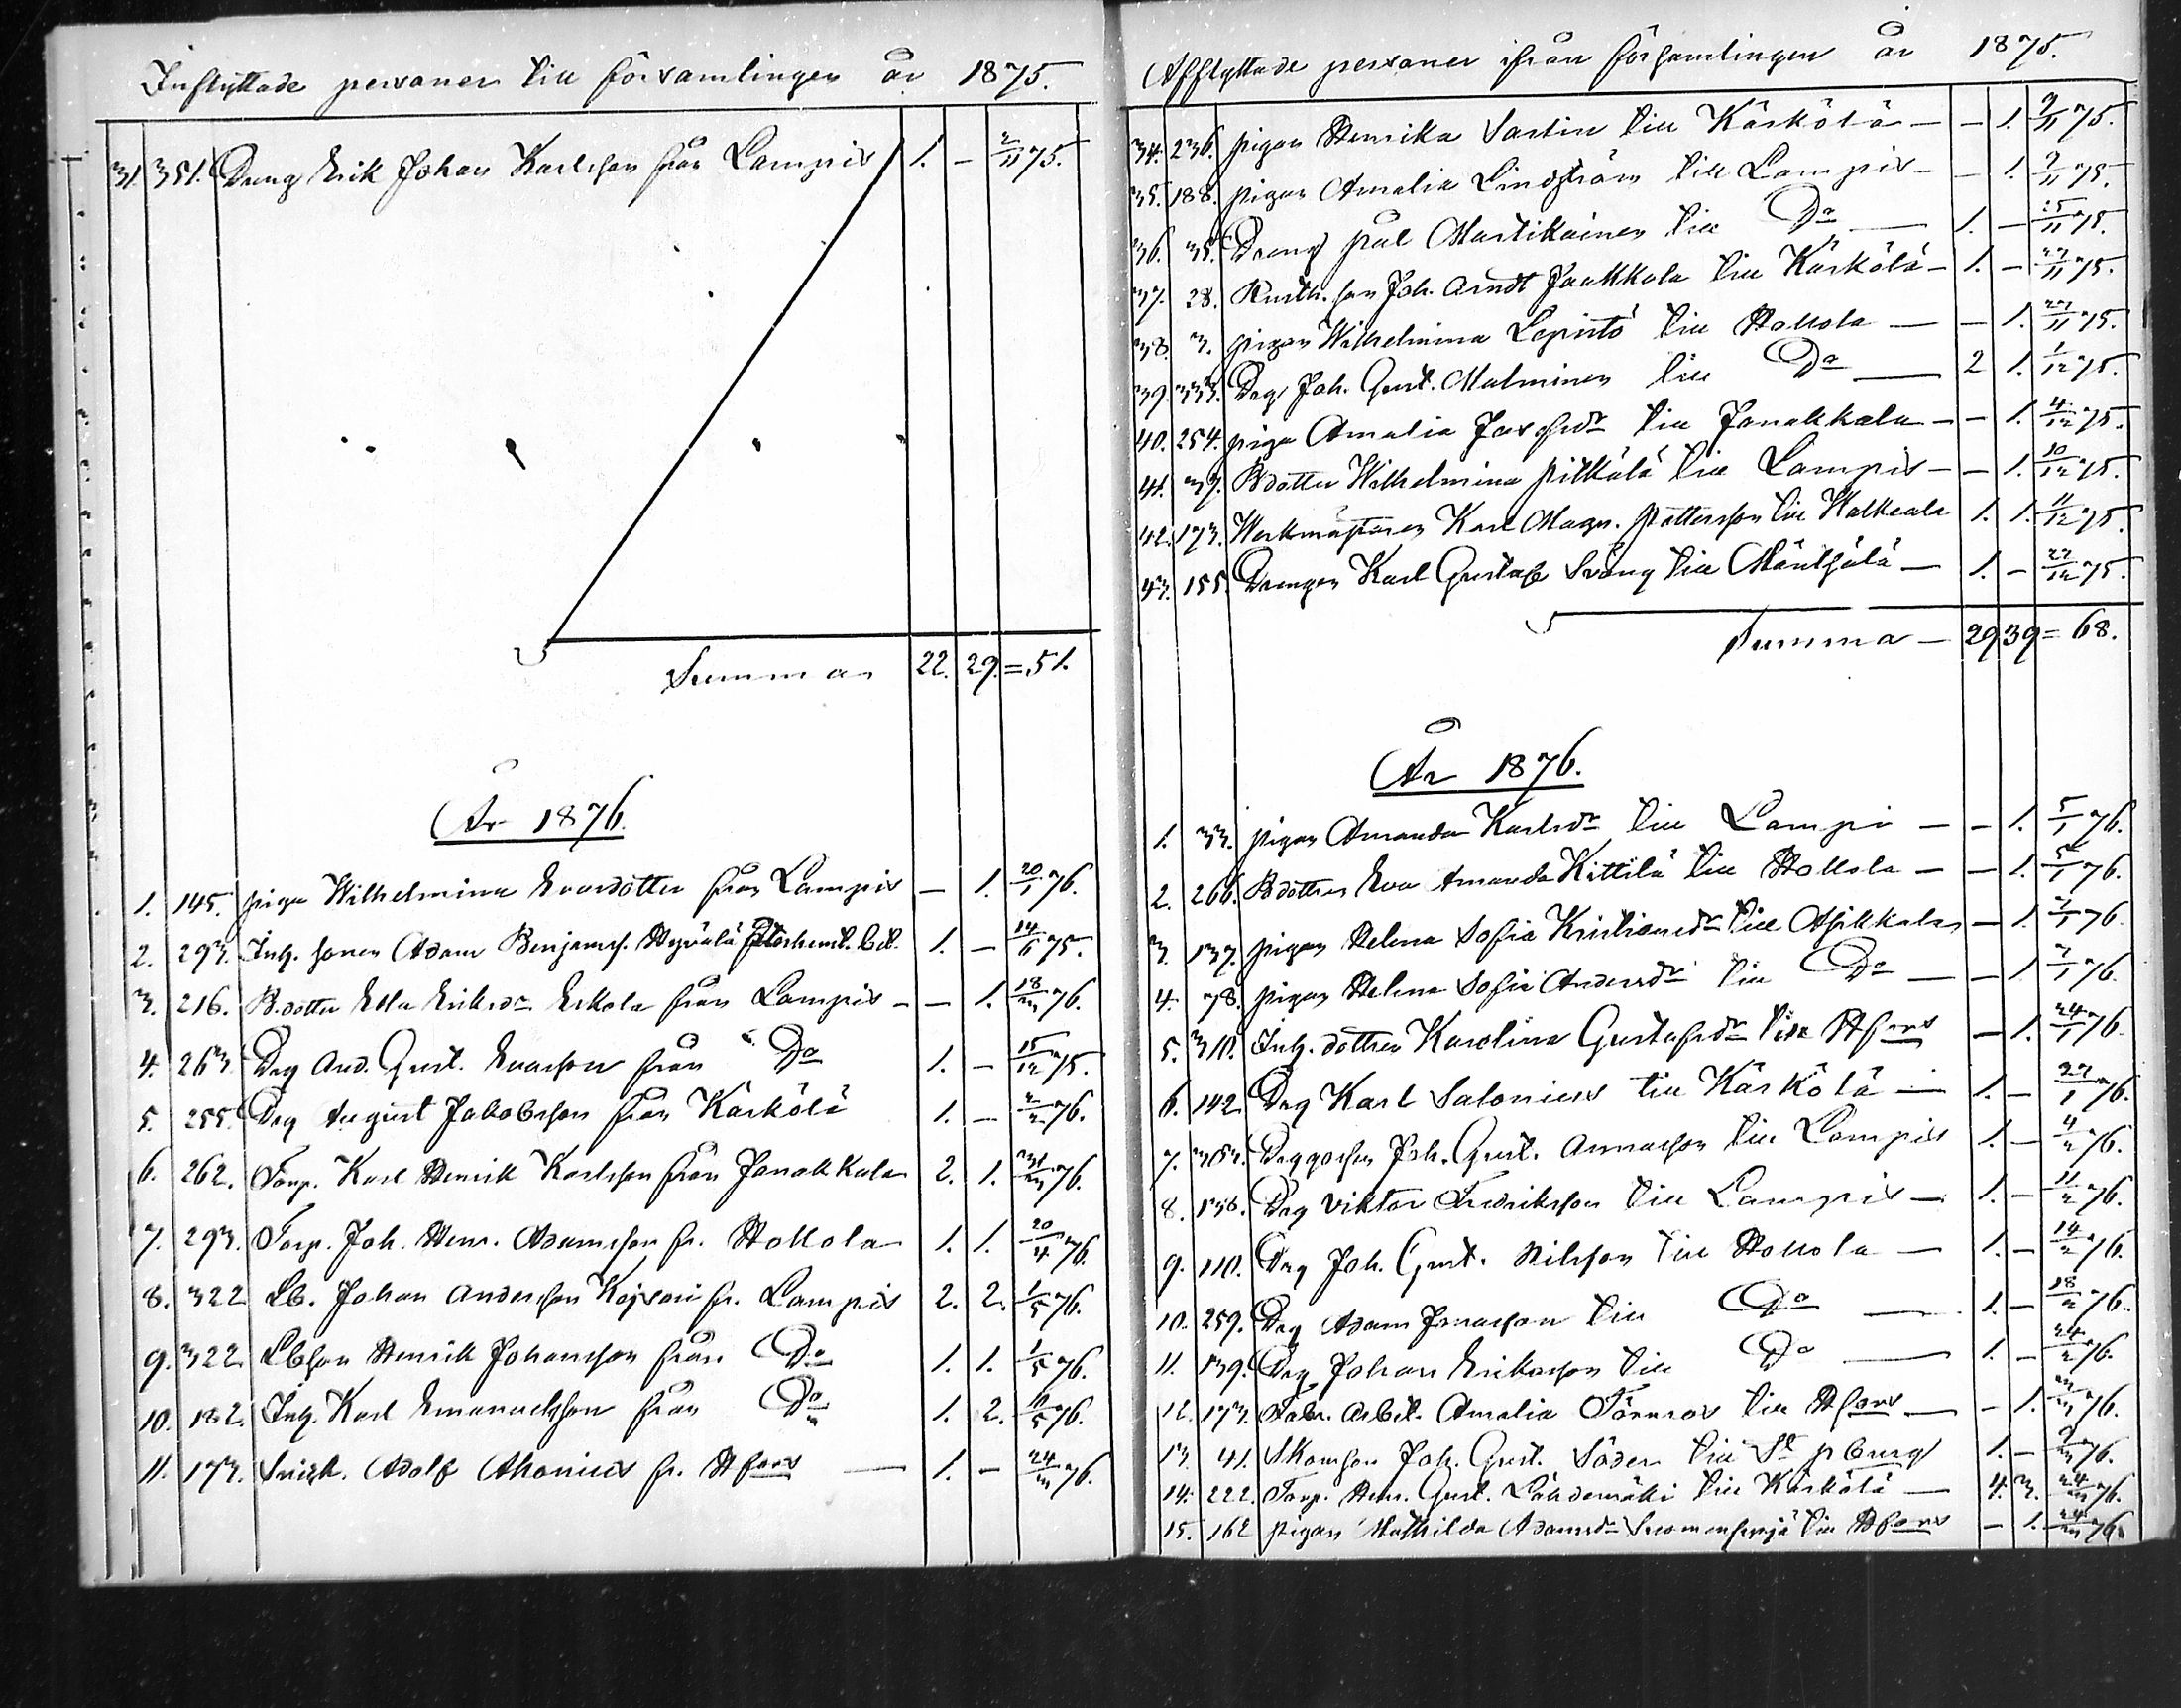 Inflyttade personer till församlingen år 1875.
31. 351. Dreng Erik Johan Karlsson från Lampis 1. - 2/11 75.
Summa 22. 29. = 51.
År 1876.
1. 145. piga Wilhelmina Evasdotter från Lampis - 1. 20/1 76.
2. 293. Inh. sonen Adam Benjamss. 1. - 14/6 75.
3. 216. B.dotter Ulla Eriksdr Erkola från Lampis - - 1. 18/3 76.
4. 263. Drg And. Gust. Evasson från Do 1. - 15/12 75.
5. 255. Drg August Jakobsson från Kärkölä 1. - 2/2 76.
6. 262. Torp. Karl Henrik Karlsson från Janakkala 2. 1. 31/3 76.
7. 293. Torp. Joh. Henr. Adamsson fr. Hollola 1. 1. 20/4 76.
8. 322 Lb. Johan Andersson fr. Lampis 2. 2. 1/5 76.
9. 322 Lbson Henrik Johansson från Do 1. 1. 1/5 76.
10. 182. Inh. Karl Emanuelsson från Do 1. 2. /5 76.
11. 173. Snick. Adolf Ahonius fr. Hfors — 1. - 24/3 76.
Afflyttade personer ifrån församlingen år 1875.
34. 236. pigan Henrika Sartin till Kärkölä - - 1. 9/11 75.
35. 188. pigan Amalia Lindström till Lampis - - 1. 9/11 75.
36. 35. Dreng Pål Martikainen till Do — 1. - 25/11 75.
37. 28. Rusth. son Joh. Arndt Jaakkola till Kärkölä - 1. - 27/11 75.
38. 3. pigan Wilhelmina Lepistö till Hollola — - 1. 27/11 75.
39. 333. Drg Joh. Gust. Malminen till Do — 2 1. 1/12 75.
40. 254. piga Amalia till Janakkala - - 1. 4/12 75.
41. 37. Bdotter Wilhelmina Pitkälä till Lampis - - 1. 10/12 75.
42. 173. Werkmästaren Karl Magn. Pettersson till Walkeala 1. 1. 11/12 75.
43. 155. Drengen Karl Gustaf Sväng till Mäntsälä - 1. - 22/12 75.
Summa - 29 39 = 68.
År 1876.
1. 33. pigan Amanda Karlsdr till Lampi - - 1. 5/1 76.
2. 266. Bdottren Eva Amanda Kittilä till Hollola - - 1. 5/1 76.
3. 137. pigan Helena Sofia Kristiansdr till Asikkala - 1. 7/1 76.
4. 78. pigan Helena Sofia Andersdr till Do — - 1. 7/1 76.
5. 310. Inh. dottren Karolina Gustafsdr till Hfors - 1. 24/1 76.
6. 142 Drg Karl Salonius till Kärkölä - 1. - 27/1 76.
7. Drggossen Joh. Gust. Annasson till Lampis 1. - 4/2 76.
8. 136. Drg Viktor Fredriksson till Lampis - 1. - 11/2 76.
9. 110. Drg Joh. Gust. Nilsson till Hollola - 1. - 14/2 76.
10. 259. Drg Adam Jonasson till Do — 1. - 18/2 76.
11. 139. Drg Johan Eriksson till Do — 1. - 24/2 76.
12. 173. Fabr. Arbet. Amalia Törnroos till Hfors — - 1. 76.
13. 41. Skomson Joh. Gust. Söder till St. pburg 1. - 76.
14. 222. Torp. Henr. Gust. Lähdemäki till Kärkölä — 4. 3. 24/3 76.
15. 162 pigan Mathilda Adamsdr till Hfors - 1. 24/3 76.